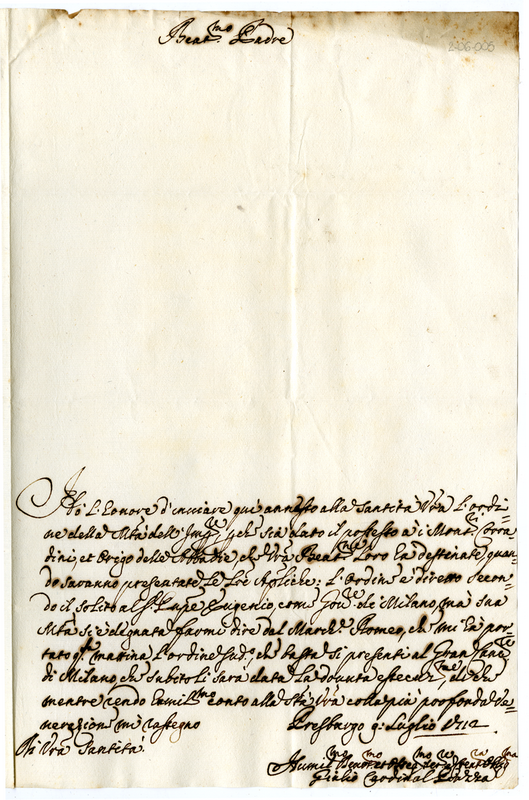 Beat.mo Padre
2-06-006
Hò L'honore d'inviare quì annesso alla Santità Vra L'ordi-
ne della Mtà dell' Imp.re per sia dato il possesso a i Mons.ri Corra
dini, et Origo delle Abbadie, che Vra Beat.ne Loro ha destinate, quan-
do saranno presentate Le Lre Apliche: L'ordine è diretto secon-
do il solito al S.r Lupe Eugenio, come Gov.re di Milano, mà sua
Mtà si è degnata farmi dire dal March.e Romeo, che mi ha por-
tato q.ta matina L'ordine sud.o, che basta si presenti al Gran Canc.re
di Milano che subito Li sarà data La dovuta esecuz.ne, di che
mentre rendo humil.mo conto alla Stà Vra colla più profonda Ve-
nerazion mi rassegno Presburgo 9: Luglio 1712
Di Vra Santità
Humil.mo Devot.mo et
Giulio Cardinal Piazza